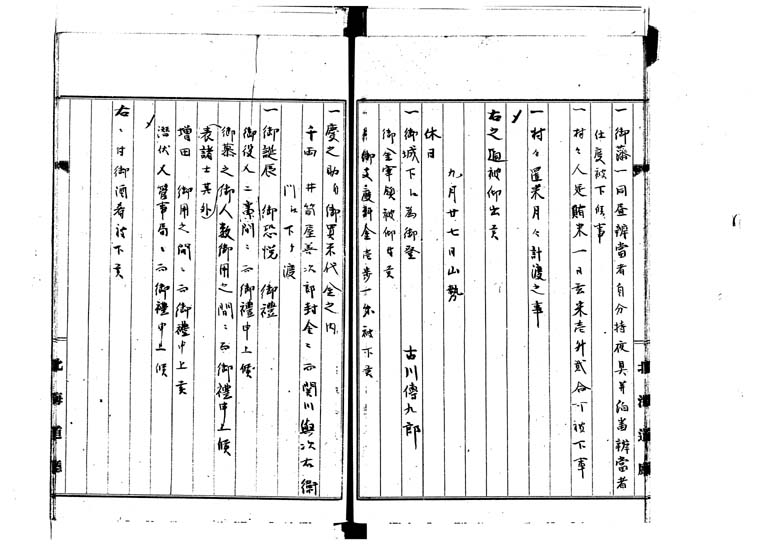 一御藩一同昼辨當者自分持夜具并泊當辨當者
仕度被下候事
一村々人足賄米一日玄米壱升弐合ツヽ被下事
一村々置米月々計渡之事
右之通被仰出事
九月廿七日山勢
休日
一御城下江為御登 古川傳九郎
御金宰領被仰付事
御支度料金壱歩一朱被下事
一慶之助自御買米代金之内
千両 井筒屋善次郎封金ニ而関川與次右衛
門江下ケ渡
一御誕辰 御恐悦 御禮
御役人二ノ間ニ而御禮申上候
御幕之御人数御用之間ニ而御禮申上候
表諸士其外
増田 御用之間ニ而御禮申上事
潜伏人 營事局ニ而御禮申上候
右ニ付御酒肴被下事
北海道廳
北海道廳